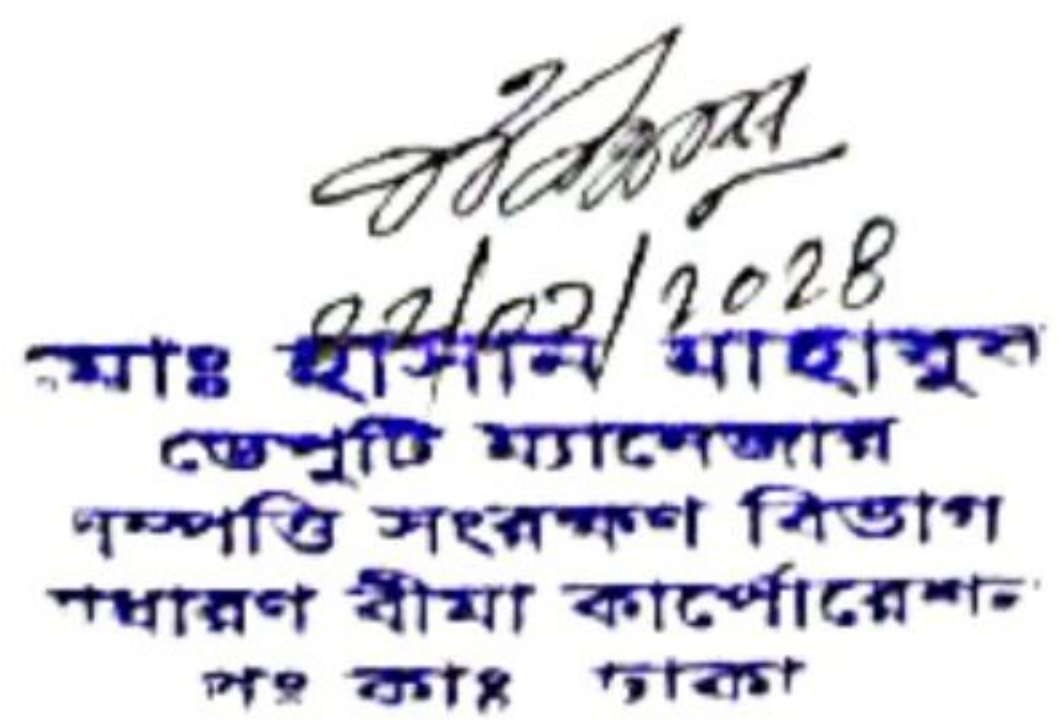 ২২/০২/২০২৪
মোঃ হাসান মাহামুদ
ডেপুটি ম্যানেজার
সম্পত্তি সংরক্ষণ বিভাগ
সাধারণ বীমা কার্পোরেশন
প্রঃ কাঃ ঢাকা